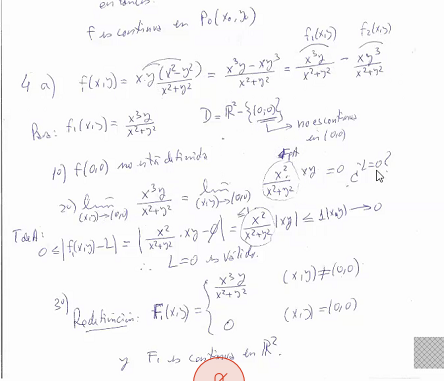 entonces.
f es continua en P₀(x₀, y₀)
f₁(x,y) f₂(x,y)
4 a) f(x,y) = x·y (x²-y²) / x²+y² = x³y - xy³ / x²+y² = x³y / x²+y² - xy³ / x²+y²
Para: f₁(x,y) = x³y / x²+y² D = ℝ² - {(0,0)}
→ no es continua en (0,0)
1º) f(0,0) no está definida
2º) lím (x,y)→(0,0) x³y / x²+y² = lím (x,y)→(0,0) x² / x²+y² xy = 0 ¿L=0?
0 ≤ |f(x,y) - L| = | x² / x²+y² · xy - 0 | = x² / x²+y² |xy| ≤ 1|xy| → 0
∴ L=0 es válido.
3º) Redefinición: F₁(x,y) = { x³y / x²+y² (x,y) ≠ (0,0)
0 (x,y) = (0,0)
y F₁ es continua en ℝ².